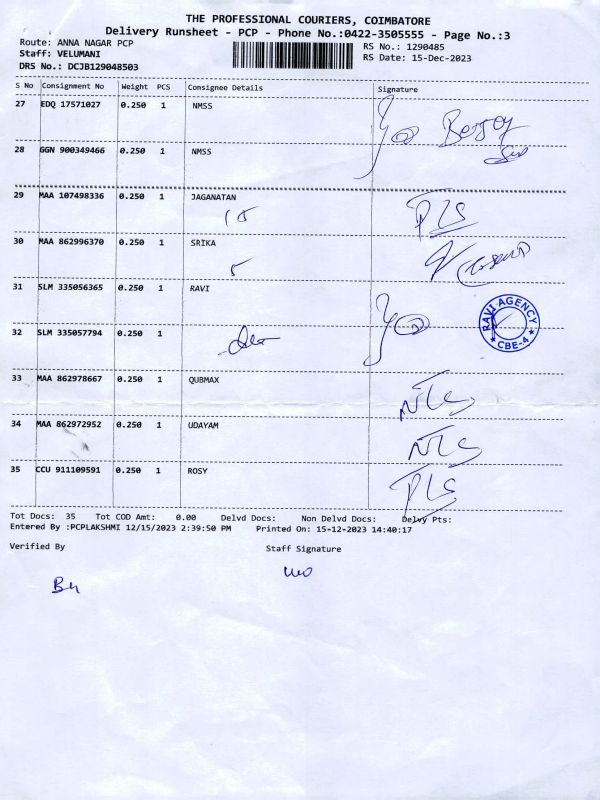 THE PROFESSIONAL COURIERS, COIMBATORE
Delivery Runsheet - PCP - Phone No.:0422-3505555 - Page No.:3
Route: ANNA NAGAR PCP
Staff: VELUMANI
DRS No.: DCJB129048503
RS No.: 1290485
RS Date: 15-Dec-2023
S No Consignment No Weight PCS Consignee Details Signature
27 EDQ 17571027 0.250 1 NMSS
28 GGN 900349466 0.250 1 NMSS
29 MAA 107498336 0.250 1 JAGANATAN
15 PLS
30 MAA 862996370 0.250 1 SRIKA
5
31 SLM 335056365 0.250 1 RAVI
RAVI AGENCY
★ CBE-4 ★
32 SLM 335057794 0.250 1
33 MAA 862978667 0.250 1 QUBMAX
NLS
34 MAA 862972952 0.250 1 UDAYAM
NLS
35 CCU 911109591 0.250 1 ROSY
PLS
Tot Docs: 35 Tot COD Amt: 0.00 Delvd Docs: Non Delvd Docs: Delvy Pts:
Entered By :PCPLAKSHMI 12/15/2023 2:39:50 PM Printed On: 15-12-2023 14:40:17
Verified By Staff Signature